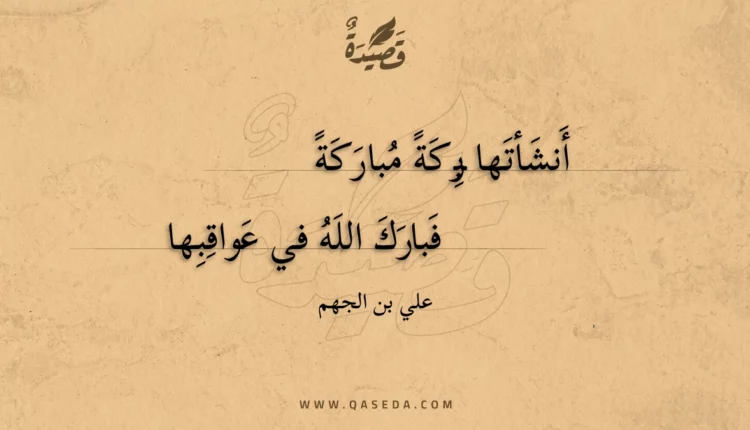 قَصِيدَةٌ
أَنشَأتَها مُبارَكَةً
فَبارَكَ اللَهُ في عَواقِبِها
علي بن الجهم
WWW.QASEDA.COM